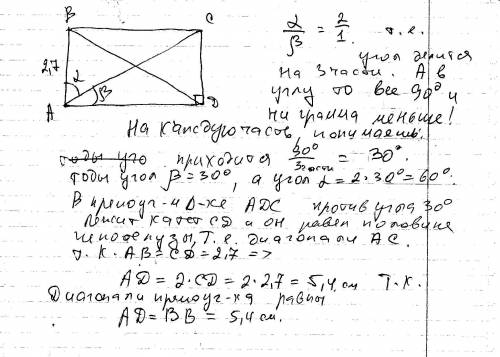 B C
2,7 α β
A D
α/β = 2/1 т.е.
угол делится
на 3 части. А в
углу то все 90° и
ни грамма меньше!
На каждую часть, понимаешь,
приходится 90°/3 части = 30°.
тоды угол β = 30°, а угол α = 2·30° = 60°.
В прямоуг-м Δ-ке ADC против угла 30°
лежит катет CD и он равен половине
гипотенузы, т.е. диагонали AC.
т.к. AB = CD = 2,7 =>
AD = 2·CD = 2·2,7 = 5,4 см т.к.
Диагонали прямоуг-ка равны
AD = BB = 5,4 см.